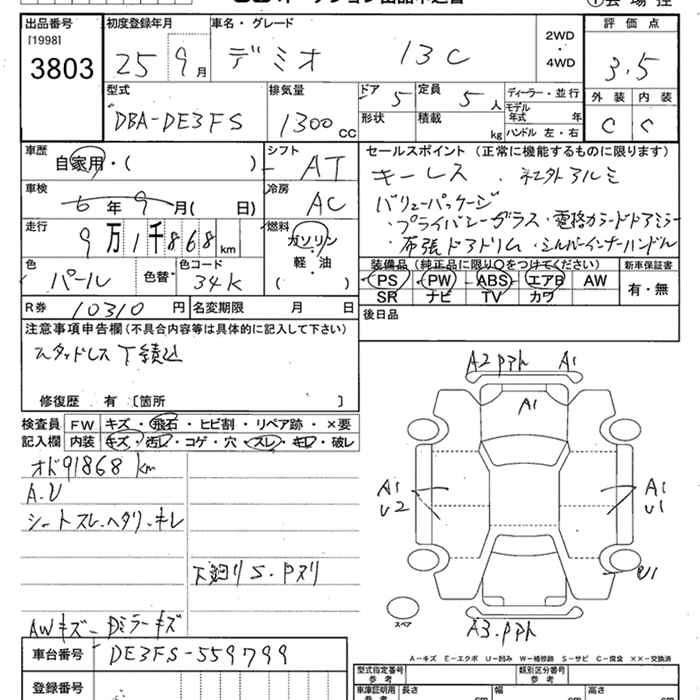 出品番号 初度登録年月 車名・グレード 2WD・4WD 評価点
[1998]
3803 25年 9月 デミオ 13C 3.5
型式 排気量 ドア 定員 ディーラー・並行 外装 内装
DBA-DE3FS 1300cc 5 5人 モデル年式 年 C C
形状 積載 kg ハンドル 左・右
車歴 自家用・( ) シフト AT セールスポイント (正常に機能するものに限ります)
キーレス. 社外アルミ
車検 6年 9月( 日) 冷房 AC バリューパッケージ
・プライバシーガラス・電格カラードドアミラー
走行 9万1千868km 燃料 ガソリン・軽・油 ( ) ・布張ドアトリム・シルバーインナーハンドル
色 パール 色替 色コード 34K 装備品 (純正品に限り○をつけてください) 新車保証書
PS PW ABS エアB AW 有・無
SR ナビ TV カワ
R券 10310円 名変期限 月 日 後日品
注意事項申告欄 (不具合内容等は具体的に記入して下さい)
スタッドレス T積込
修復歴 有 [箇所 ]
検査員 FW キズ・飛石・ヒビ割・リペア跡・×要
記入欄 内装 キズ・汚レ・コゲ・穴・スレ・キレ・破レ
オド91868km
A.U
シートスレ.ヘタリ.キレ
下廻りS.Pスリ
AWキズ Dミラーキズ
A2 A1
A1
A1 A1
U2 U1
U1
スペア A3.
A-キズ E-エクボ U-凹み W-補修跡 S-サビ C-腐食 XX-交換済
車台番号 DE3FS-559799 型式指定番号 参考 類別区分番号 参考
登録番号 車庫証明用 参考 長さ 幅 高さ